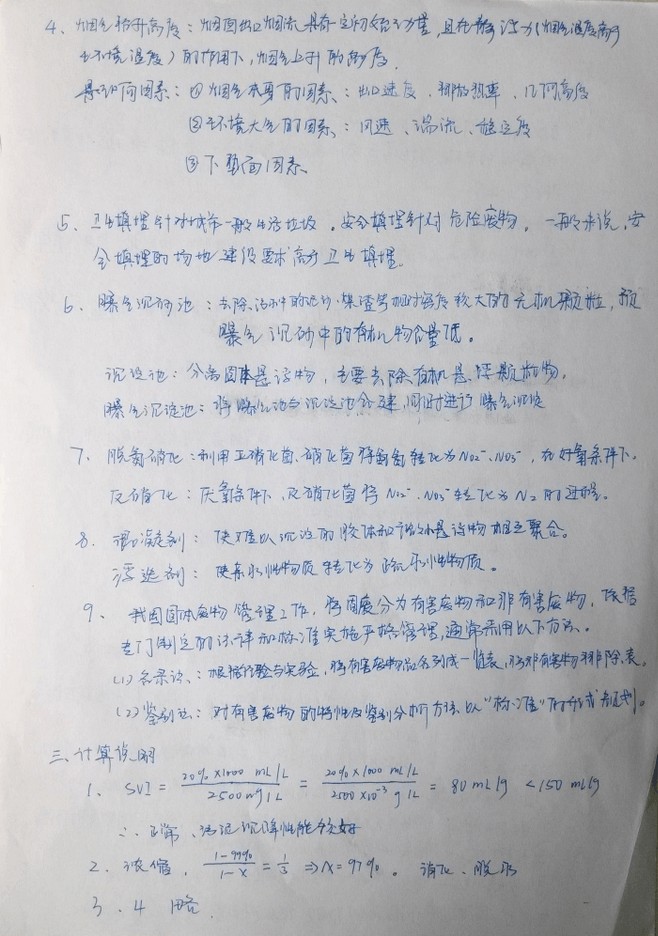 4、烟气抬升高度：烟囱出口烟流具有一定的初始动量，且在浮力（烟气温度高于
环境温度）的作用下，烟气上升的高度。
影响因素：①烟气本身的因素：出口速度、排放热率、几何高度
②环境大气的因素：风速、湍流、稳定度
③下垫面因素
5、卫生填埋针对城市一般生活垃圾，安全填埋针对危险废物。一般来说，安
全填埋的场地建设要求高于卫生填埋。
6、曝气沉砂池：去除污水中的泥沙、煤渣等相对密度较大的无机颗粒，
曝气沉砂中的有机物含量低。
沉淀池：分离固体悬浮物，主要去除有机悬浮颗粒物。
曝气沉淀池：将曝气池与沉淀池合建，同时进行曝气沉淀
7、脱氮硝化：利用亚硝化菌、硝化菌将氨氮转化为NO₂⁻、NO₃⁻，在好氧条件下。
反硝化：厌氧条件下，反硝化菌将NO₂⁻、NO₃⁻转化为N₂的过程。
8、混凝剂：使难以沉淀的胶体和细小悬浮物相互聚合。
浮选剂：使亲水性物质转化为疏水性物质。
9、我国固体废物管理工作，将固废分为有害废物和非有害废物，依据
专门制定的法律和标准实施严格管理，通常采用以下方法。
(1)名录法：根据经验与实验，将有害废物品名列成一览表，将非有害物排除表。
(2)鉴别法：对有害废物的特性及鉴别分析方法以“标准”的形式
三、计算说明
1、SVI = 20%×1000 mL/L / 2500 mg/L = 20%×1000 mL/L / 2500×10⁻³ g/L = 80 mL/g <150 mL/g
∴正常、污泥沉降性能较好
2、浓缩，(1-99%)/(1-X) = 1/3 ⇒X=97%。消化、脱水
3、4 略